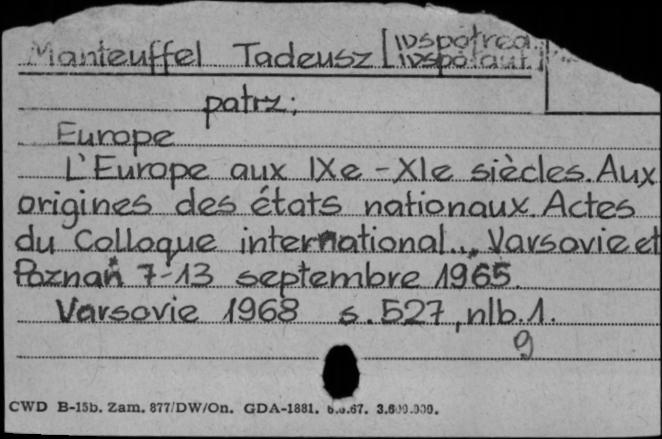 Manteuffel Tadeusz [współred.
współaut.]
patrz:
Europe
L'Europe aux IXe-XIe siècles. Aux
origines des états nationaux. Actes
du Colloque international... Varsovie et
Poznań 7-13 septembre 1965.
Varsovie 1968 s. 527, nlb. 1.
9
CWD B-15b. Zam. 877/DW/On. GDA-1881. .67. 3.600.000.